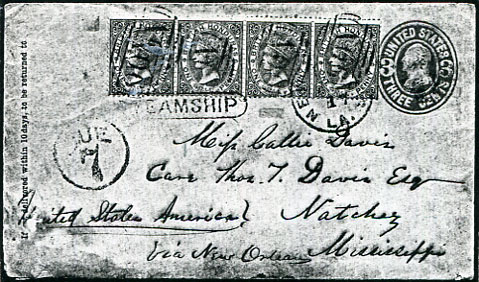 UNITED STATES
THREE CENTS
STEAMSHIP
NEW
LA.
DUE
7
If not delivered within 10 days, to be returned to
Miss Callie Davis
Care Thos. T. Davis Esq
United States America Natchez
via New Orleans Mississippi